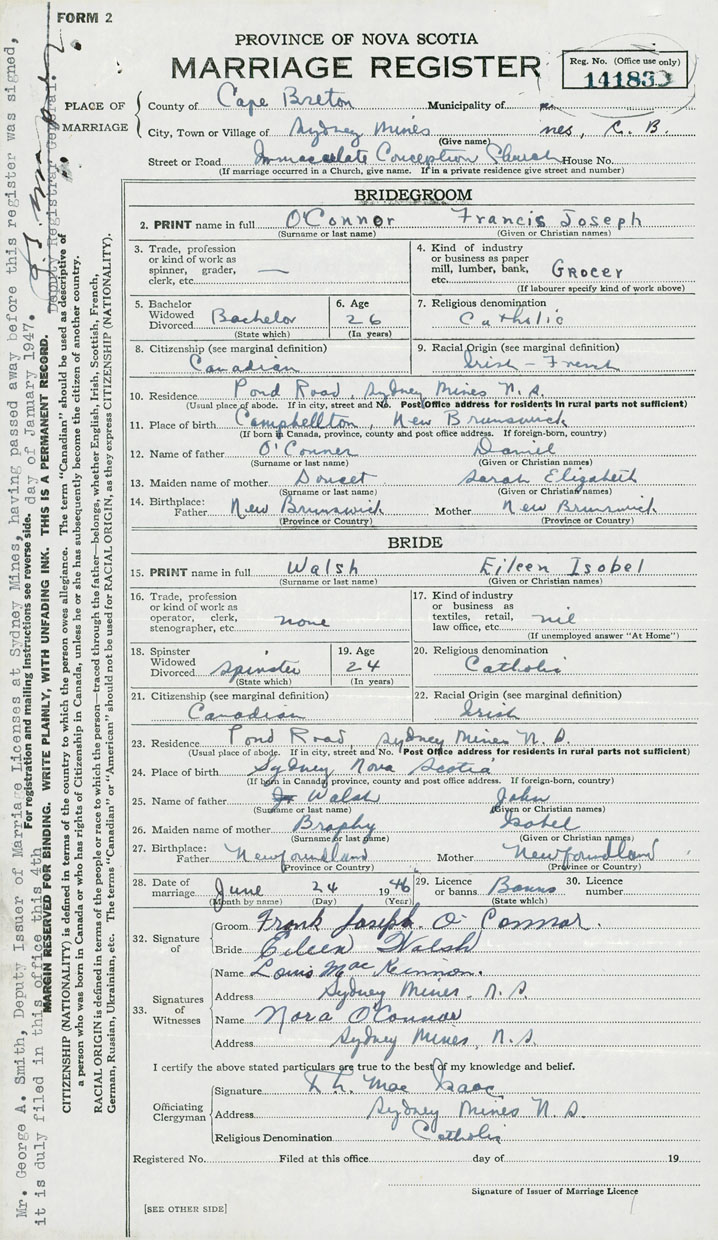 FORM 2
PROVINCE OF NOVA SCOTIA
MARRIAGE REGISTER
Reg. No. (Office use only)
141833
PLACE OF MARRIAGE
County of Cape Breton Municipality of
City, Town or Village of Sydney Mines nes, C. B.
(Give name)
Street or Road Immaculate Conception Church House No.
(If marriage occurred in a Church, give name. If in a private residence give street and number)
BRIDEGROOM
2. PRINT name in full O'Connor Francis Joseph
(Surname or last name) (Given or Christian names)
3. Trade, profession or kind of work as spinner, grader, clerk, etc. —
4. Kind of industry or business as paper mill, lumber, bank, etc. Grocer
(If labourer specify kind of work above)
5. Bachelor Widowed Divorced Bachelor
(State which)
6. Age 26
(In years)
7. Religious denomination
Catholic
8. Citizenship (see marginal definition)
Canadian
9. Racial Origin (see marginal definition)
Irish - French
10. Residence Pond Road, Sydney Mines N. S.
(Usual place of abode. If in city, street and No. Post Office address for residents in rural parts not sufficient)
11. Place of birth Campbellton, New Brunswick
(If born in Canada, province, county and post office address. If foreign-born, country)
12. Name of father O'Connor Daniel
(Surname or last name) (Given or Christian names)
13. Maiden name of mother Doucet Sarah Elizabeth
(Surname or last name) (Given or Christian names)
14. Birthplace: Father New Brunswick Mother New Brunswick
(Province or Country) (Province or Country)
BRIDE
15. PRINT name in full Walsh Eileen Isobel
(Surname or last name) (Given or Christian names)
16. Trade, profession or kind of work as operator, clerk, stenographer, etc. none
17. Kind of industry or business as textiles, retail, law office, etc. nil
(If unemployed answer "At Home")
18. Spinster Widowed Divorced Spinster
(State which)
19. Age 24
(In years)
20. Religious denomination
Catholic
21. Citizenship (see marginal definition)
Canadian
22. Racial Origin (see marginal definition)
Irish
23. Residence Pond Road, Sydney Mines N. S.
(Usual place of abode. If in city, street and No. Post Office address for residents in rural parts not sufficient)
24. Place of birth Sydney Nova Scotia
(If born in Canada, province, county and post office address. If foreign-born, country)
25. Name of father Walsh John
(Surname or last name) (Given or Christian names)
26. Maiden name of mother Brophy Isobel
(Surname or last name) (Given or Christian names)
27. Birthplace: Father Newfoundland Mother Newfoundland
(Province or Country) (Province or Country)
28. Date of marriage June 24 1946
(Month by name) (Day) (Year)
29. Licence or banns Banns
(State which)
30. Licence number
32. Signature of
Groom Frank Joseph O'Connor.
Bride Eileen Walsh
33. Signatures of Witnesses
Name Louis MacKinnon.
Address Sydney Mines, N. S.
Name Nora O'Connor
Address Sydney Mines, N. S.
I certify the above stated particulars are true to the best of my knowledge and belief.
Officiating Clergyman
Signature Mac Isaac
Address Sydney Mines N. S.
Religious Denomination Catholic
Registered No. Filed at this office day of 19
Signature of Issuer of Marriage Licence
[SEE OTHER SIDE]
Mr. George A. Smith, Deputy Issuer of Marriage Licenses at Sydney Mines, having passed away before this register was signed,
it is duly filed in this office this 4th day of January 1947.
Deputy Registrar General.
For registration and mailing instructions see reverse side.
MARGIN RESERVED FOR BINDING. WRITE PLAINLY, WITH UNFADING INK. THIS IS A PERMANENT RECORD.
CITIZENSHIP (NATIONALITY) is defined in terms of the country to which the person owes allegiance. The term "Canadian" should be used as descriptive of
a person who was born in Canada or who has rights of Citizenship in Canada, unless he or she has subsequently become the citizen of another country.
RACIAL ORIGIN is defined in terms of the people or race to which the person—traced through the father—belongs, whether English, Irish, Scottish, French,
German, Russian, Ukrainian, etc. The terms "Canadian" or "American" should not be used for RACIAL ORIGIN, as they express CITIZENSHIP (NATIONALITY).